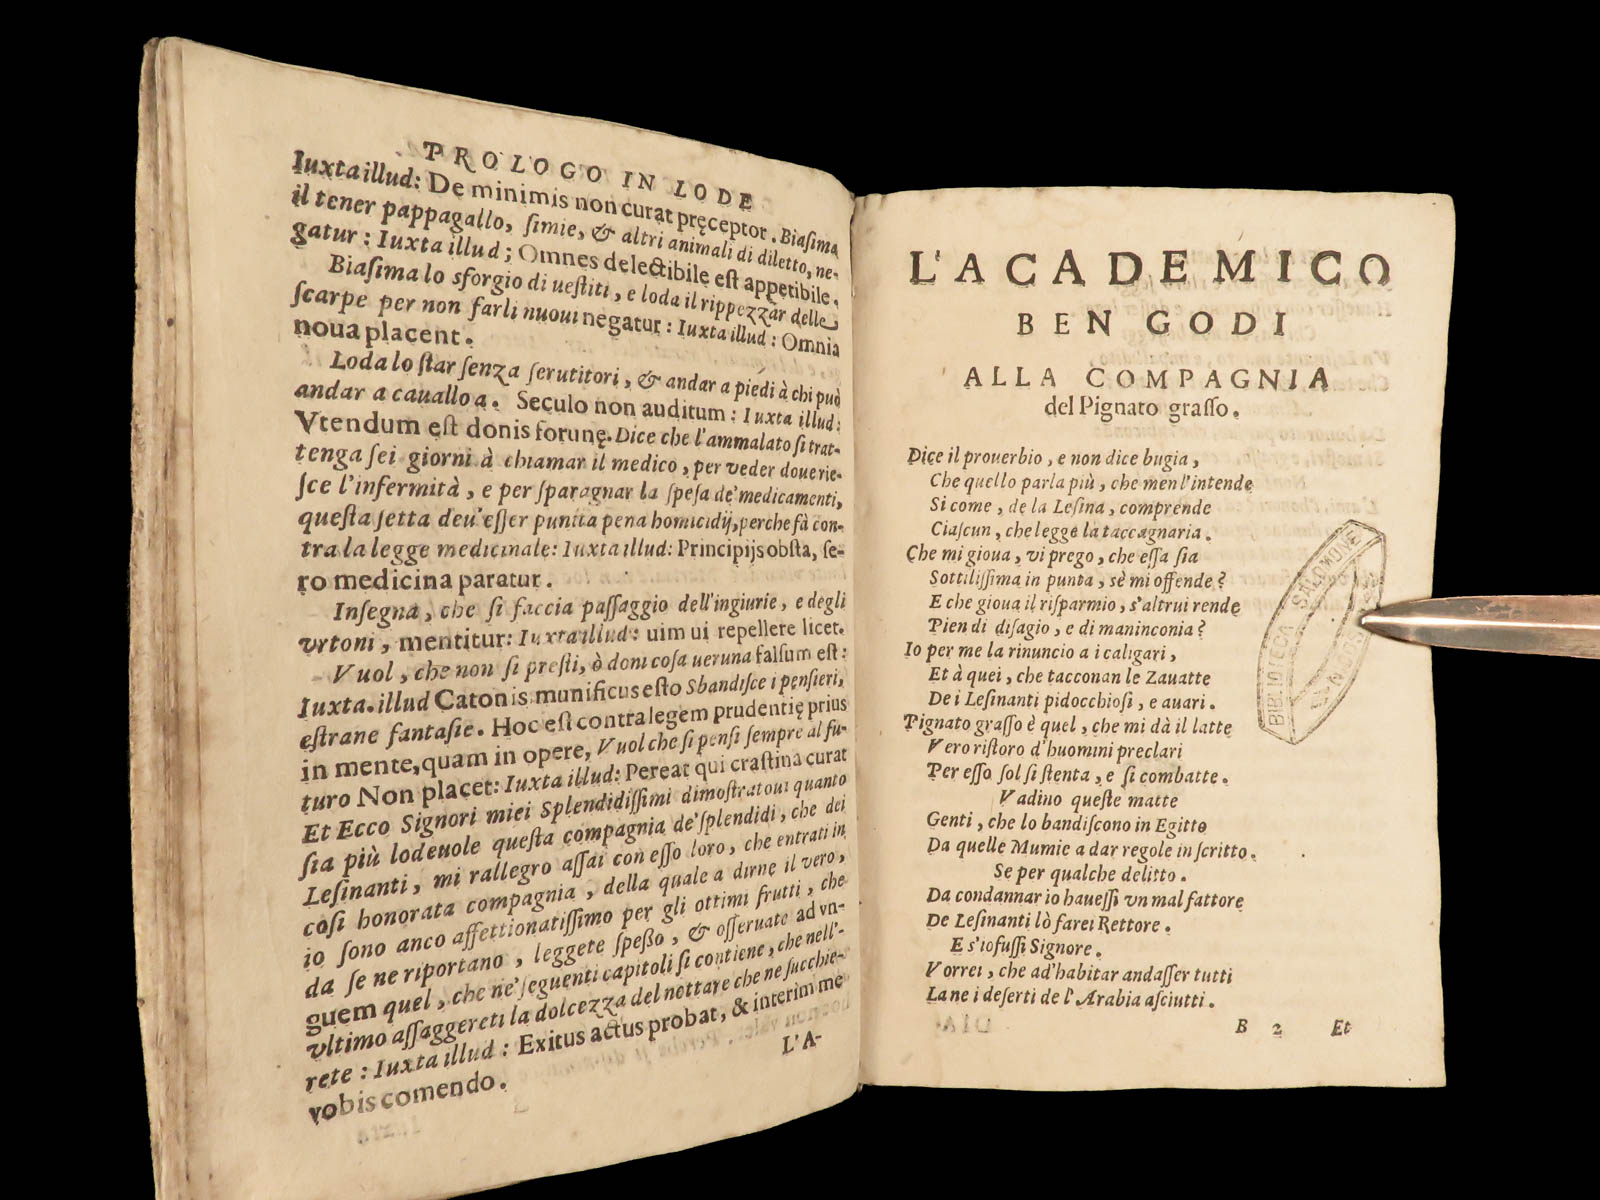 PROLOGO IN LODE
Iuxta illud: De minimis non curat pręceptor. Biaſima
il tener pappagallo, ſimie, & altri animali di diletto, ne-
gatur: Iuxta illud; Omnes delectibile eſt appetibile.
Biaſima lo sforgio di ueſtiti, e loda il rippezzar delle
ſcarpe per non farli nuoui negatur: Iuxta illud: Omnia
noua placent.
Loda lo ſtar ſenza ſerutitori, & andar a piedi à chi può
andar a cauallo a. Seculo non auditum: Iuxta illud:
Vtendum eſt donis forunę. Dice che l'ammalato ſi trat-
tenga ſei giorni à chiamar il medico, per veder doue rie-
ſce l'infermità, e per ſparagnar la ſpeſa de' medicamenti,
queſta ſetta deu'eſſer punita pena homicidij, perche fà con-
tra la legge medicinale: Iuxta illud: Principijs obſta, ſe-
ro medicina paratur.
Inſegna, che ſi faccia paſſaggio dell'ingiurie, e degli
vrtoni, mentitur: Iuxta illud: uim ui repellere licet.
Vuol, che non ſi preſti, ò doni coſa ueruna falſum eſt:
Iuxta. illud Catonis munificus eſto Sbandiſce i penſieri,
eſtrane fantaſie. Hoc eſt contra legem prudentię prius
in mente, quam in opere, Vuol che ſi penſi ſempre al fu-
turo Non placet: Iuxta illud: Pereat qui craſtina curat
Et Ecco Signori miei Splendidiſſimi dimoſtratoui quanto
ſia più lodeuole queſta compagnia de' ſplendidi, che dei
Leſinanti, mi rallegro aſſai con eſſo loro, che entrati in
coſi honorata compagnia, della quale a dirne il vero,
io ſono anco affettionatiſſimo per gli ottimi frutti, che
da ſe ne riportano, leggete ſpeßo, & oſſeruate ad vn-
guem quel, che ne' ſeguenti capitoli ſi contiene, che nell'-
vltimo aſſaggereti la dolcezza del nettare che ne ſucchie-
rete: Iuxta illud: Exitus actus probat, & interim me
vobis comendo.
L'A-
L'ACADEMICO
BEN GODI
ALLA COMPAGNIA
del Pignato graſſo.
Dice il prouerbio, e non dice bugia,
Che quello parla più, che men l'intende
Si come, de la Leſina, comprende
Ciaſcun, che legge la taccagnaria.
Che mi gioua, vi prego, che eſſa ſia
Sottiliſſima in punta, sè mi offende?
E che gioua il riſparmio, s'altrui rende
Pien di diſagio, e di maninconia?
Io per me la rinuncio a i caligari,
Et à quei, che tacconan le Zauatte
De i Leſinanti pidocchioſi, e auari.
Pignato graſſo è quel, che mi dà il latte
Vero riſtoro d'huomini preclari
Per eſſo ſol ſi ſtenta, e ſi combatte.
Vadino queſte matte
Genti, che lo bandiſcono in Egitto
Da quelle Mumie a dar regole in ſcritto.
Se per qualche delitto.
Da condannar io haueſſi vn mal fattore
De Leſinanti lò farei Rettore.
E s'io fuſſi Signore.
Vorrei, che ad'habitar andaſſer tutti
La ne i deſerti de l'Arabia aſciutti.
B 2 Et
BIBLIOTECA SALOMONE